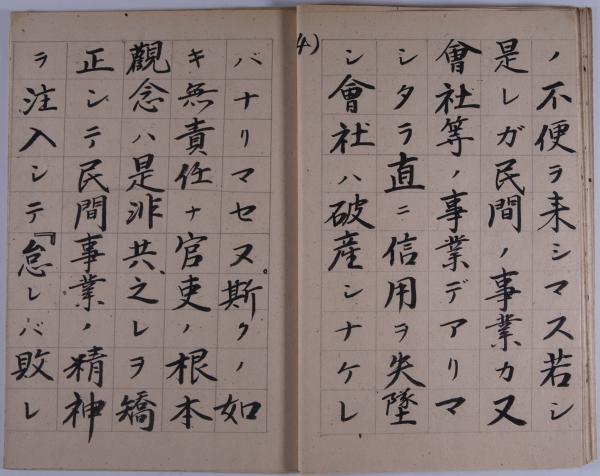 4)
ノ不便ヲ来シマス若シ
是レガ民間ノ事業カ又
會社等ノ事業デアリマ
シタラ直ニ信用ヲ失墜
シ會社ハ破産シナケレ
バナリマセヌ斯クノ如
キ無責任ナ官吏ノ根本
觀念ハ是非共之レヲ矯
正シテ民間事業ノ精神
ヲ注入シテ『怠レバ敗レ